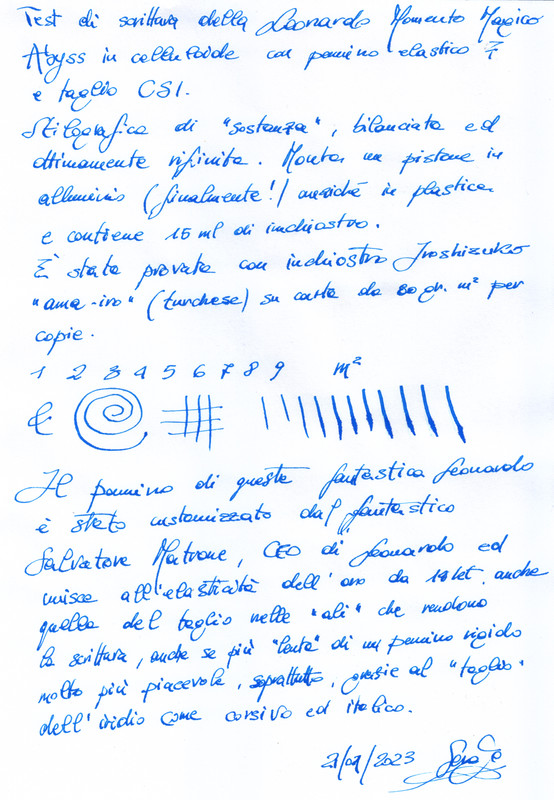 Test di scrittura della Leonardo Momento Magico
Abyss in celluloide con pennino elastico F
e taglio CSI.
Stilografica di "sostanza", bilanciata ed
ottimamente rifinita. Monta un pistone in
alluminio (finalmente!) anziché in plastica
e contiene 15 ml di inchiostro.
È stata provata con inchiostro Iroshizuku
"ama-iro" (turchese) su carta da 80 gr. m² per
copie.
1 2 3 4 5 6 7 8 9 m²
&
Il pennino di questa fantastica Leonardo
è stato customizzato dal fantastico
Salvatore Matrone, CEO di Leonardo ed
unisce all'elasticità dell'oro da 18 kt. anche
quella del taglio nelle "ali" che rendono
la scrittura, anche se più "lenta" di un pennino rigido
molto più piacevole, soprattutto, grazie al "taglio"
dell'iridio come corsivo ed italico.
21/07/2023